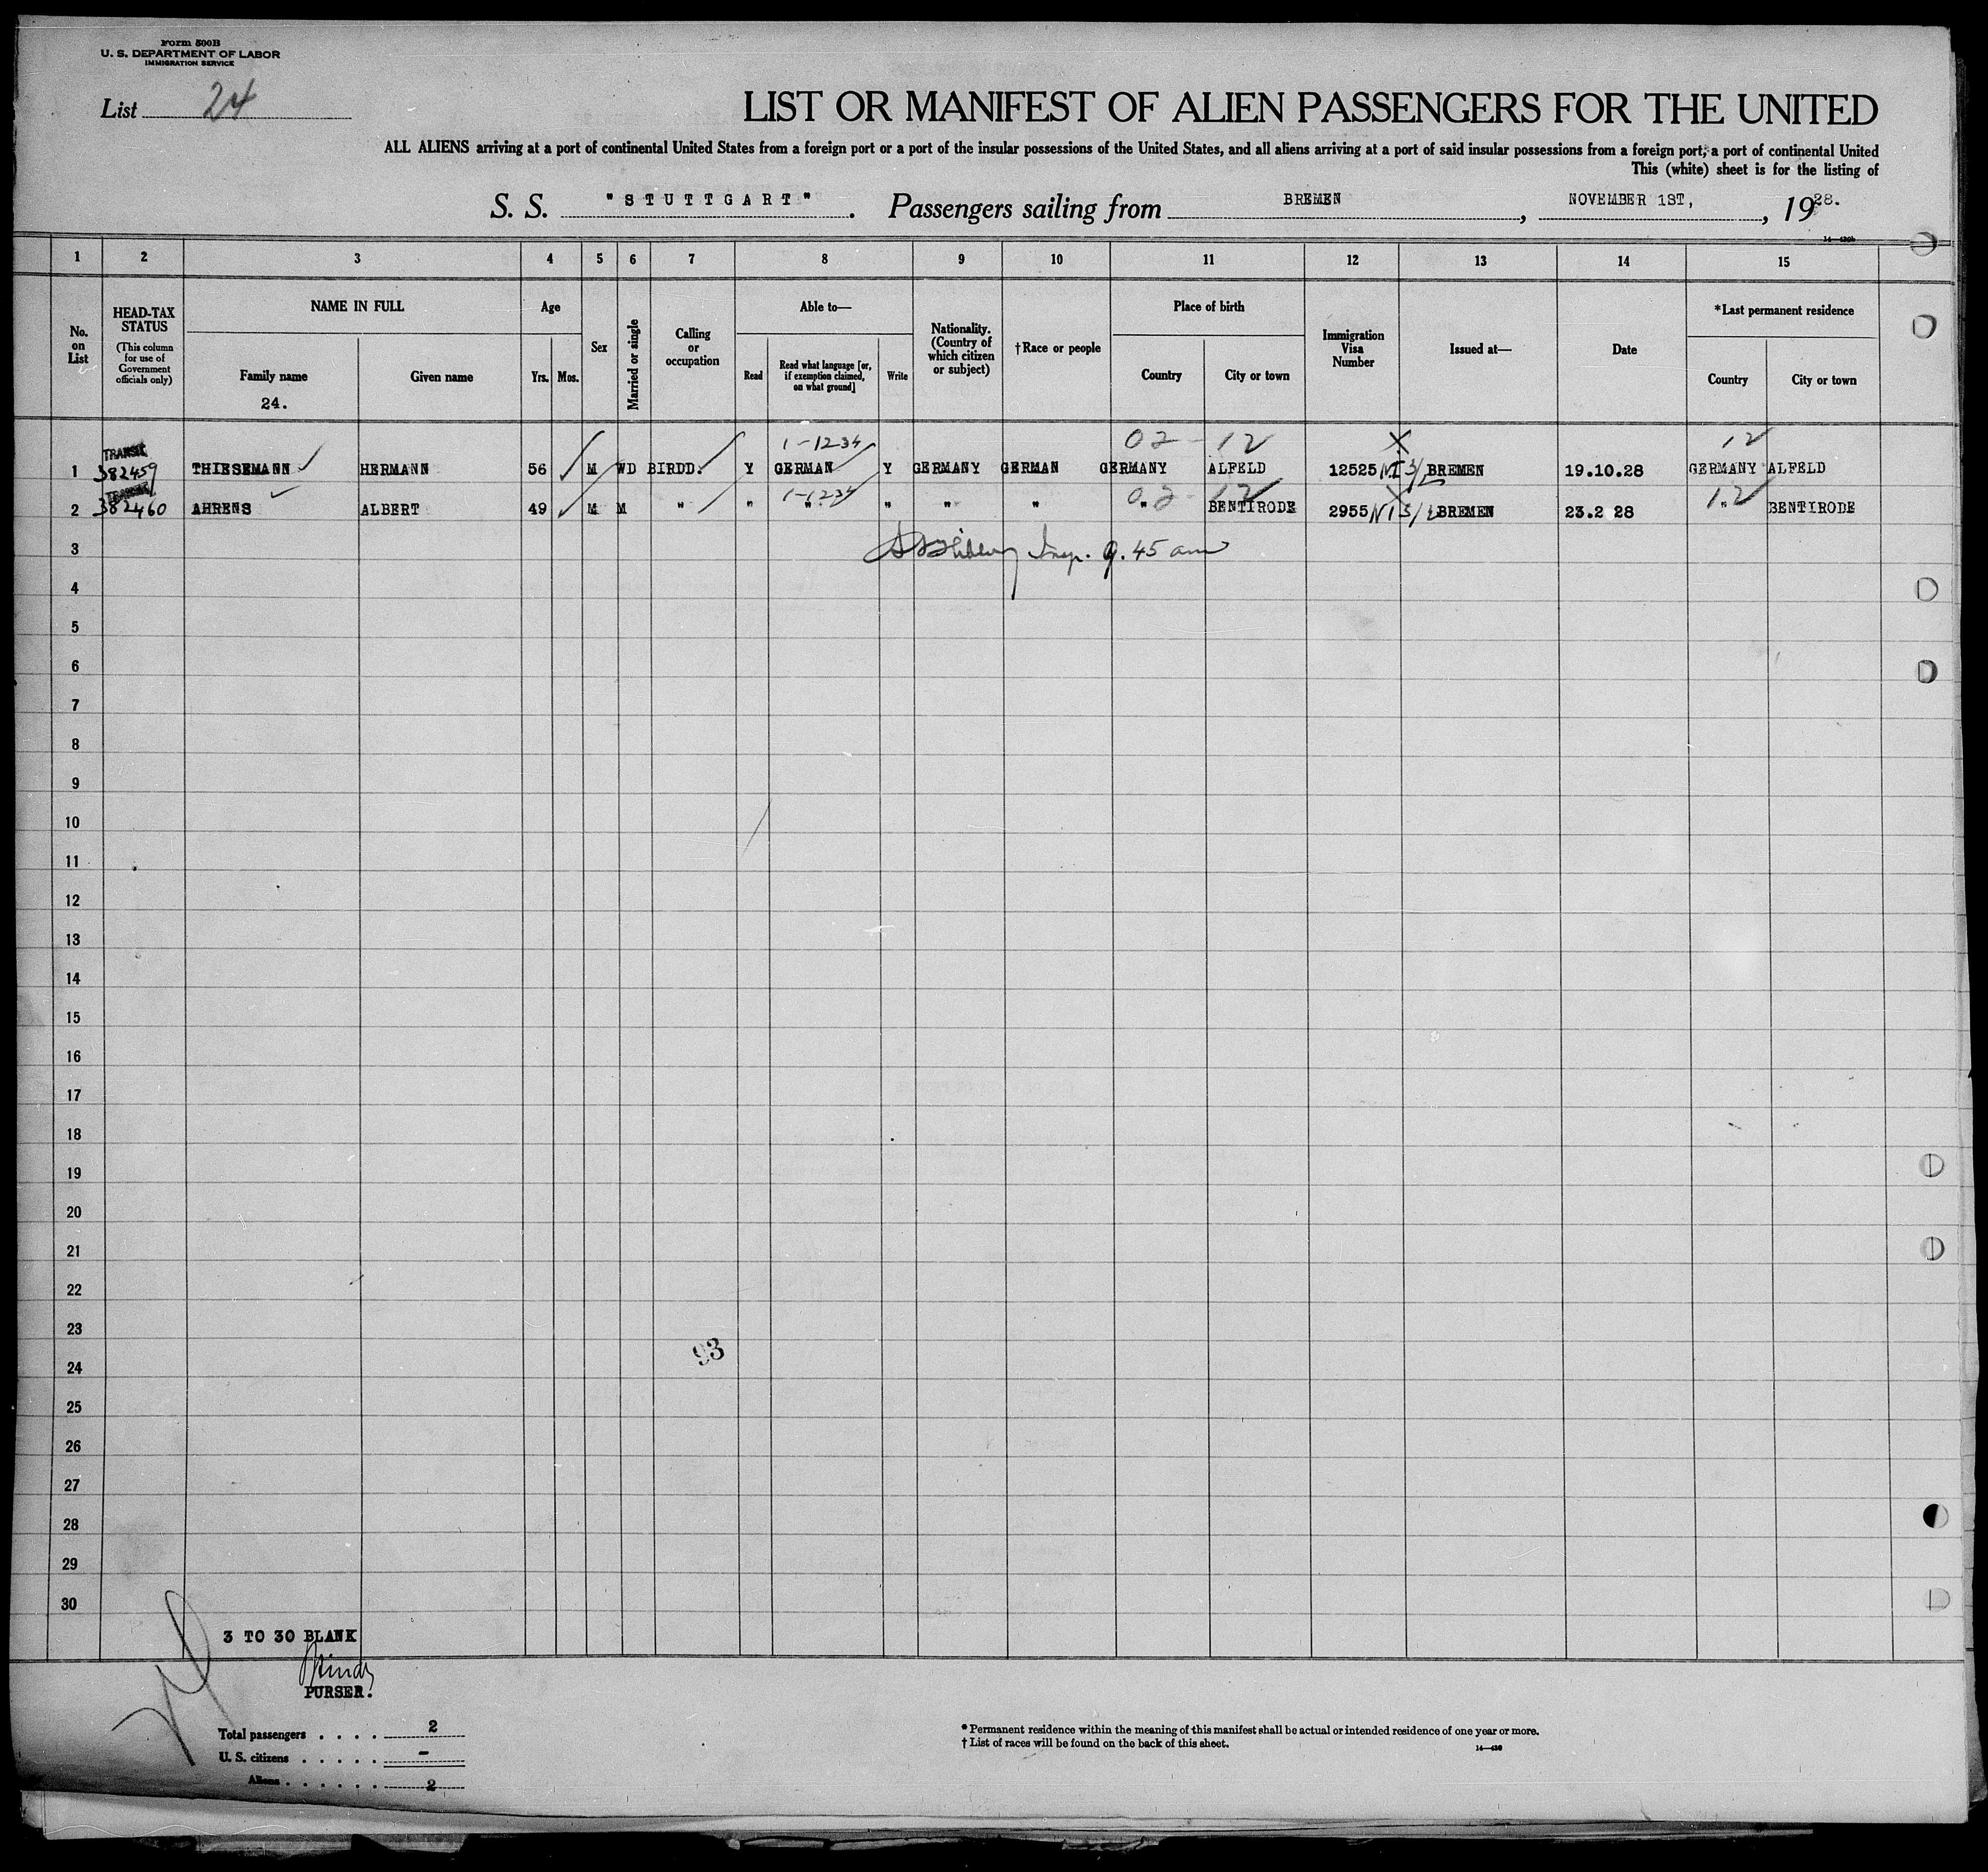 Form 500B
U. S. DEPARTMENT OF LABOR
IMMIGRATION SERVICE
List 24
LIST OR MANIFEST OF ALIEN PASSENGERS FOR THE UNITED
ALL ALIENS arriving at a port of continental United States from a foreign port or a port of the insular possessions of the United States, and all aliens arriving at a port of said insular possessions from a foreign port, a port of continental United
This (white) sheet is for the listing of
S. S. "STUTTGART". Passengers sailing from BREMEN, NOVEMBER 1ST, , 1928.
14—430b
1 2 3 4 5 6 7 8 9 10 11 12 13 14 15
No. on List
HEAD-TAX STATUS
(This column for use of Government officials only)
NAME IN FULL
Family name
24.
Given name
Age
Yrs. Mos.
Sex
Married or single
Calling or occupation
Able to—
Read
Read what language [or, if exemption claimed, on what ground]
Write
Nationality. (Country of which citizen or subject)
†Race or people
Place of birth
Country
City or town
Immigration Visa Number
Issued at—
Date
*Last permanent residence
Country
City or town
1-1234 02-12 X 12
TRANSIT
1 382459 THIESEMANN HERMANN 56 M WD BIRDD. Y GERMAN Y GERMANY GERMAN GERMANY ALFELD 12525 BREMEN 19.10.28 GERMANY ALFELD
TRANSIT 1-1234 02-12 X 12
2 382460 AHRENS ALBERT 49 M M " " " " " " " BENTIRODE 2955 BREMEN 23.2 28 " BENTIRODE
3 Insp. 9.45 am
4
5
6
7
8
9
10
11
12
13
14
15
16
17
18
19
20
21
22
23
93
24
25
26
27
28
29
30
3 TO 30 BLANK
PURSER.
Total passengers . . . . 2
U. S. citizens . . . . . -
Aliens . . . . . . 2
*Permanent residence within the meaning of this manifest shall be actual or intended residence of one year or more.
†List of races will be found on the back of this sheet.
14—430